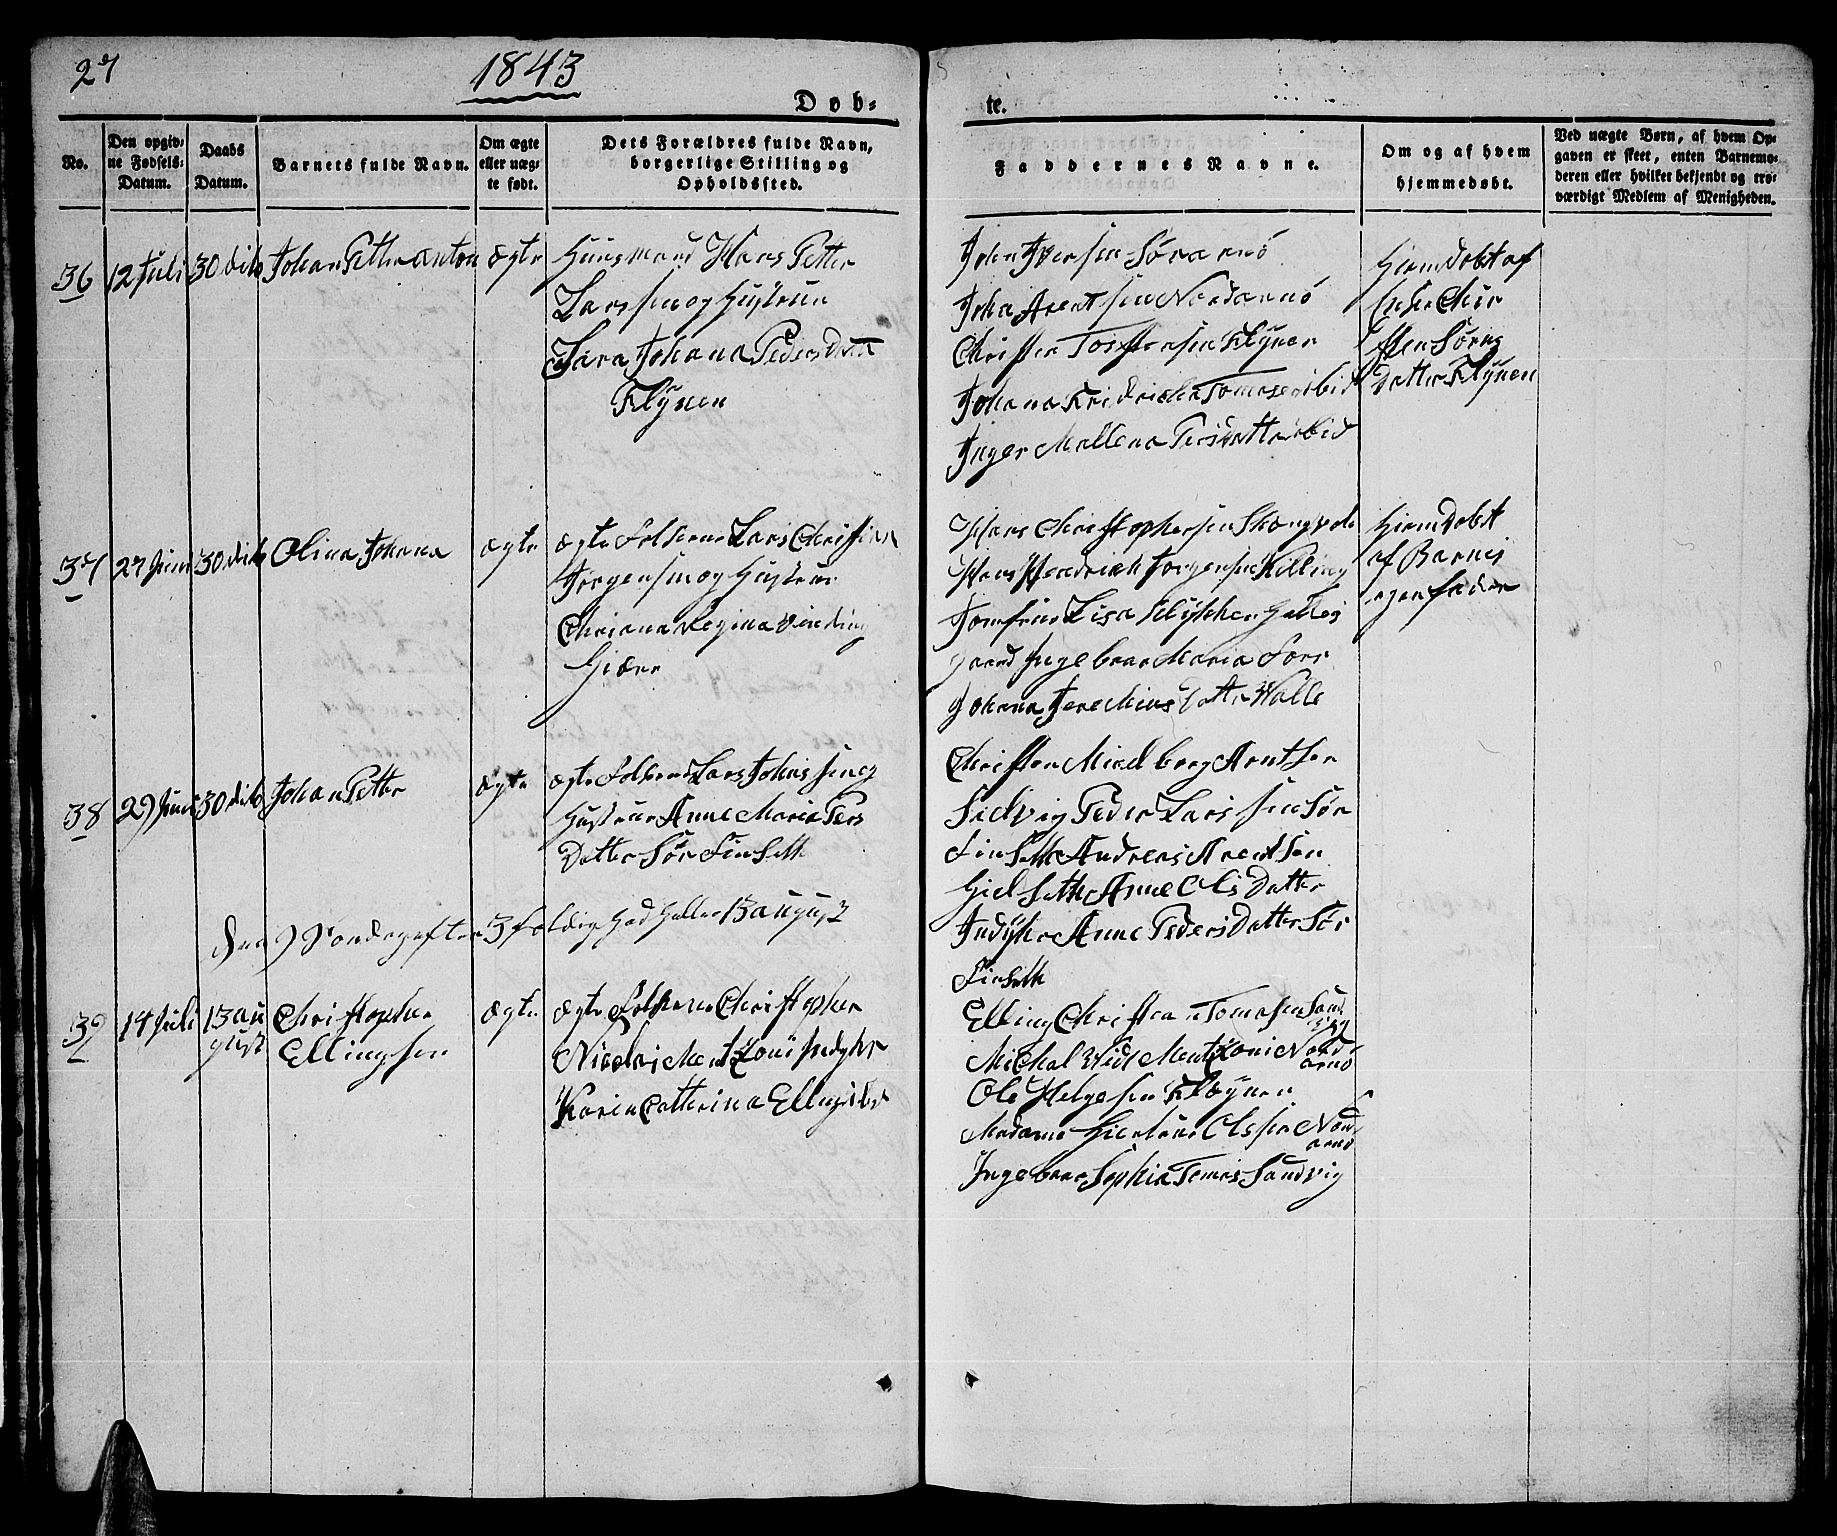 27
1843
Døb-
te.
No.
Den opgiv-
ne Fødsels-
Datum.
Daabs
Datum.
Barnets fulde Navn.
Om ægte
eller uæg-
te født.
Dets Forældres fulde Navn,
borgerlige Stilling og
Opholdssted.
Faddernes Navne.
Om og af hvem
hjemmedøbt.
Ved uægte Børn, af hvem Op-
gaven er skeet, enten Barnemo-
deren eller hvilket bekjendt og tro-
værdigt Medlem af Menigheden.
36
12 Juli
30 dito
Johan Petter Anton
ægte
Huusmand Hans Petter
Larssen og Hustrue
Sara Johana Peders Datter
Flynen
John Iversen Sørarnø
Joha Arentsen Nordarnø
Christen Torstensen Flynen
Johana Fridricka Tomese ibid
Inger Mallena Persdatter ibid
Hiemdobt af
Enke
Søren
Datter Flynen
37
27 Juni
30 dito
Olina Johana
ægte
ægte Folkene Lars Christian
Jørgensen og Hustrue
Christiana Regina Vinding
Giære
Hans Christophersen
Hans Hendrick Jørgensen Killing
Jomfrue Lisa
gaard Ingebor Maria Fors
Johana Jerechius Datter Valle
Hiemdobt
af Barnes
egen fader
38
29 Juni
30 dito
Johan Petter
ægte
ægte Folkene Lars Johnssen og
Hustrue Anne Maria Pers
Datter Sør Finseth
Christen Miedberg Arntsen
Selvig Peder Larssen Sør
Finseth Andreas Arentsen
Gielseth Anne Ols Datter
Indyhr Anne Peders Datter Sør
Finseth
den 9 Søndag efter 3foldighed Holles 13 August
39
14 Juli
13 Au
gust
Christopher
Ellingsen
ægte
ægte Folkene Christopher
Nicolai Mentzoni Indyhr
Karen Catherina Ellings ibid
Elling Christian Tomesen Sand
vig
Michal Hvid Mentzoni Nord
arnø
Ole Helgesen Fløynen
Madame Giertrue Olssen Nord
arnø
Ingebor Sophia Tomis Sandvig